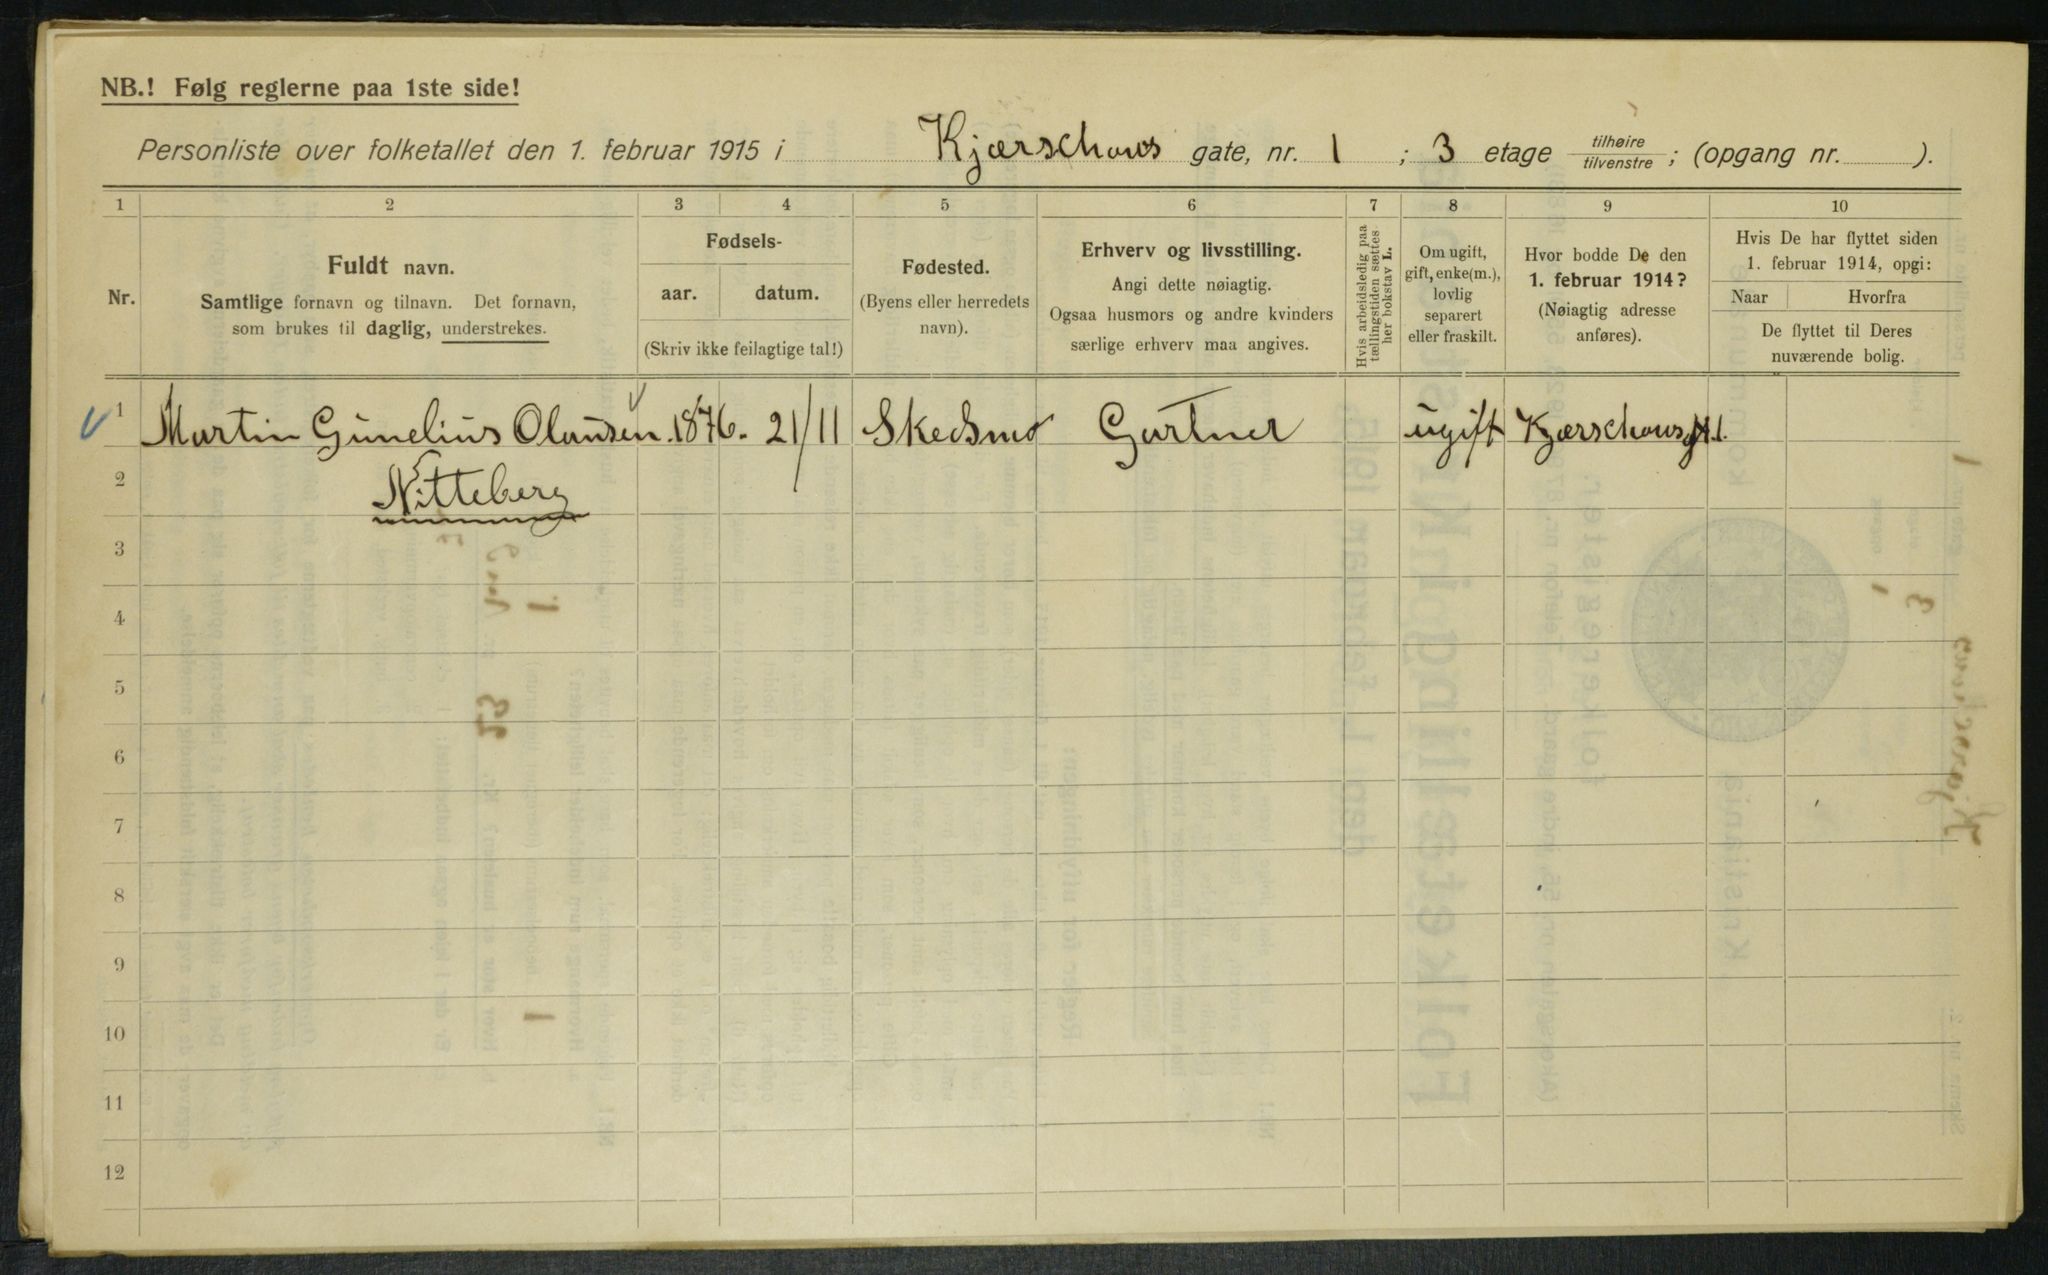 NB.! Følg reglerne paa 1ste side!
Personliste over folketallet den 1. februar 1915 i Kjærschows gate, nr. 1 ; 3 etage tilhøire/tilvenstre ; (opgang nr. ).
1 2 3 4 5 6 7 8 9 10
Nr.
Fuldt navn.
Samtlige fornavn og tilnavn. Det fornavn,
som brukes til daglig, understrekes.
Fødsels-
aar. datum.
(Skriv ikke feilagtige tal!)
Fødested.
(Byens eller herredets
navn).
Erhverv og livsstilling.
Angi dette nøiagtig.
Ogsaa husmors og andre kvinders
særlige erhverv maa angives.
Hvis arbeidsledig paa
tællingstiden sættes
her bokstav L.
Om ugift,
gift, enke(m.),
lovlig
separert
eller fraskilt.
Hvor bodde De den
1. februar 1914?
(Nøiagtig adresse
anføres).
Hvis De har flyttet siden
1. februar 1914, opgi:
Naar Hvorfra
De flyttet til Deres
nuværende bolig.
1 Martin Gunelius Olausen 1876. 21/11 Skedsmo Gartner ugift Kjærschowsgt 1.
2 Nitteberg
3
4
5
6
7
8
9
10
11
12